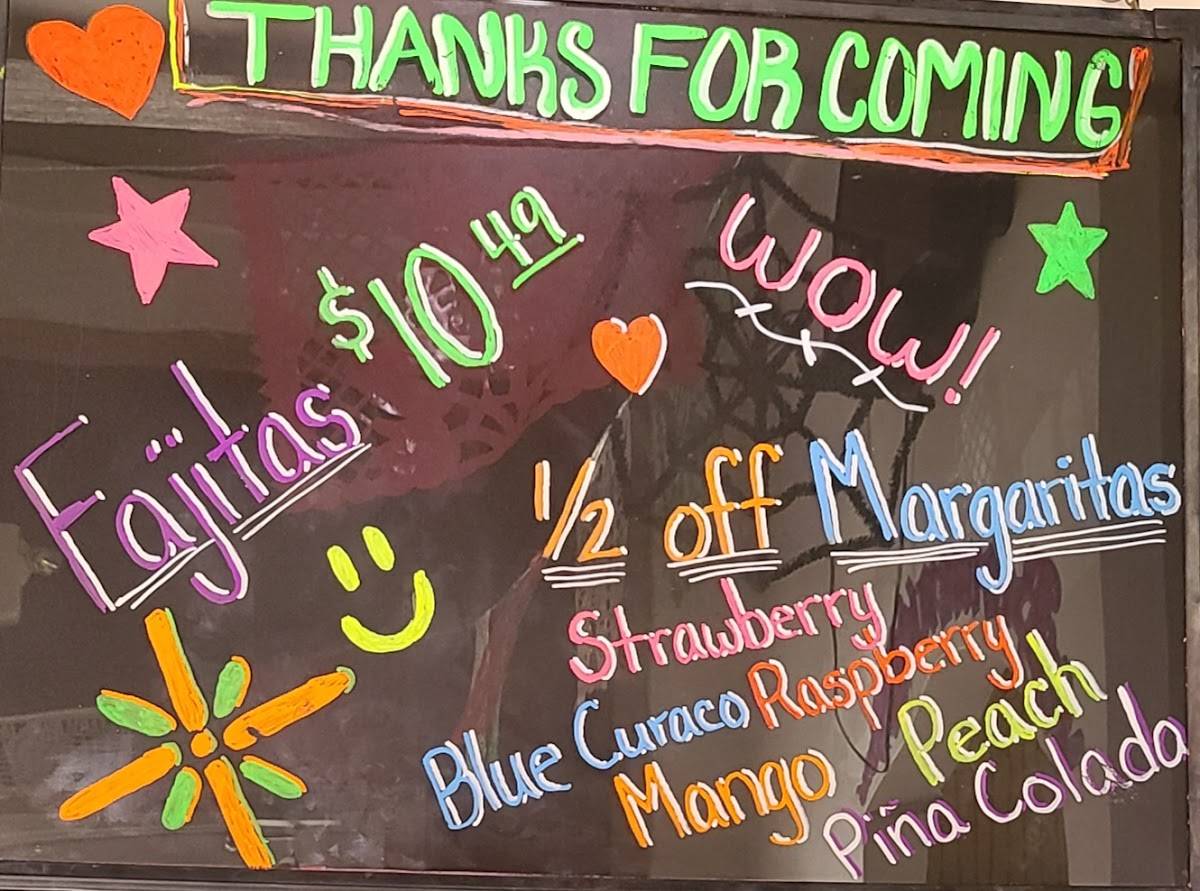 THANKS FOR COMING
$10 49
WOW!
Fajitas
1/2 off Margaritas
Strawberry
Blue Curaco Raspberry
Mango Peach
Piña Colada